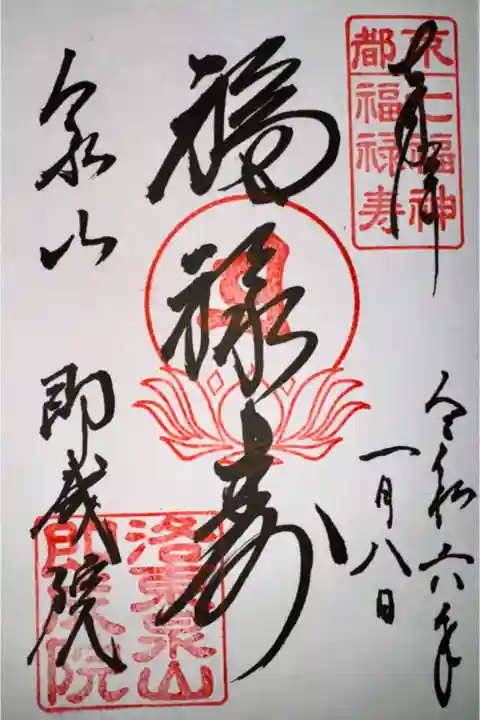 奉拝
京都七福神
福禄寿
令和六年
一月八日
福禄寿
泉山
即成院
洛東泉山
即成院